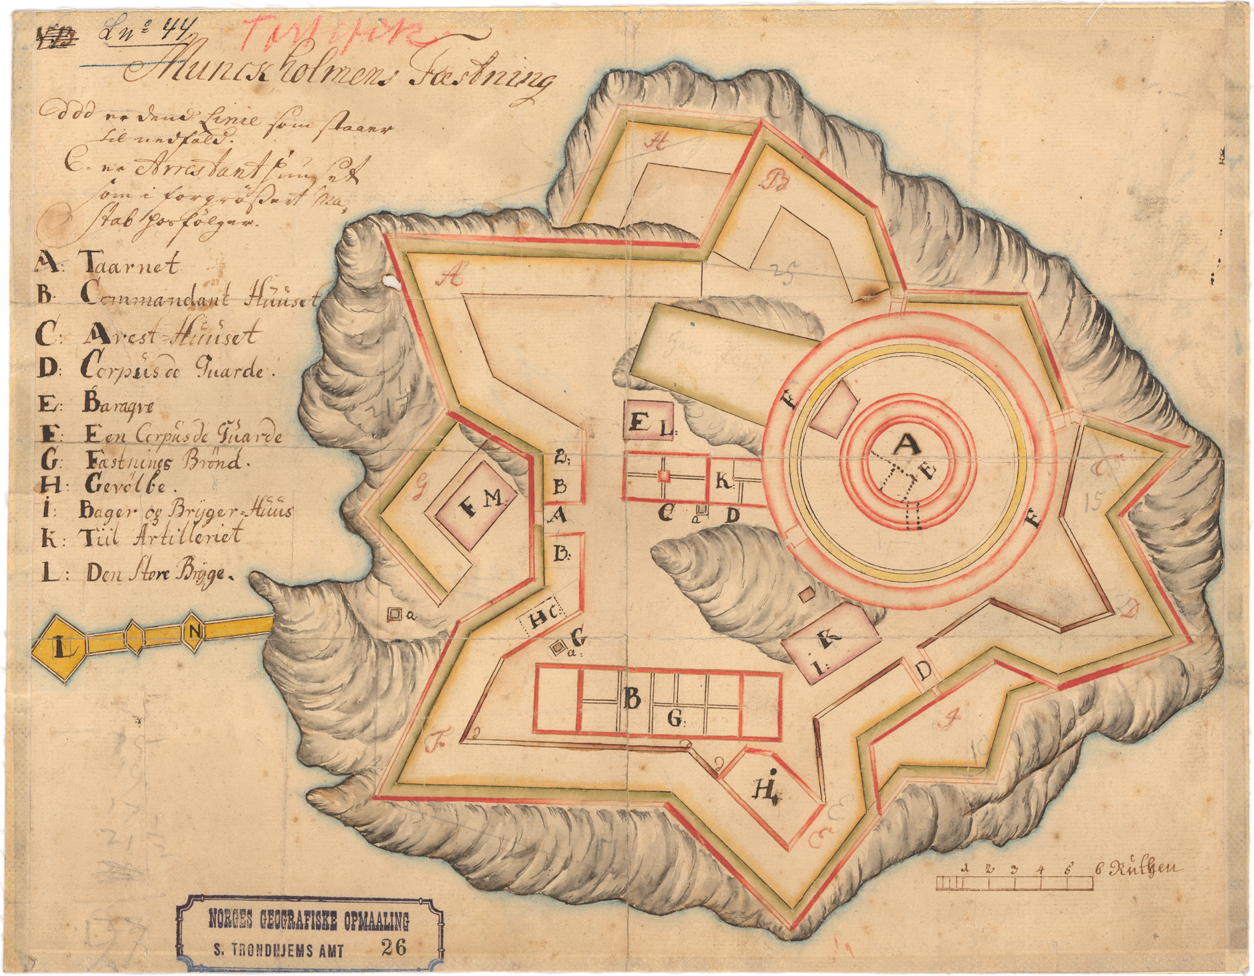 Ln° 44
Munckholmens Fæstning
ddd er dend Linie som staaer
til nedfald.
C. er Arrestanthuuset
som i forgrößert Ma,
stab hosfölger.
A: Taarnet
B: Commandant Huuset
C: Arest-Huuset
D: Corpüs de Guarde.
E: Baraqve
F: Een Corpüs de Guarde
G: Fæstnings Brönd.
H: Gevölbe.
i: Bager og Brÿger-Huus
K: Tiil Artilleriet
L: Den Store Brÿge.
H
B
25
A
F
A
E
E L:
K
C
a
D
F
G
F M
2:
B
A
B:
C
15
D
a
H C
G
a:
K
i:
L
N
B
G:
D
F
2
2
Hi
E
1 2 3 4 5 6 Rüthen
NORGES GEOGRAFISKE OPMAALING
S. TRONDHJEMS AMT 26